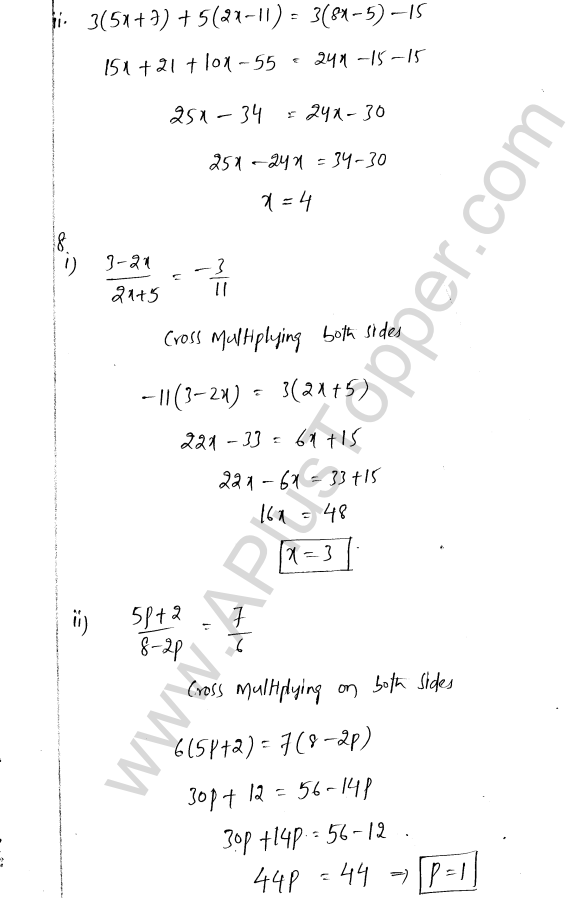 ii. 3(5x+7) + 5(2x-11) = 3(8x-5) -15
15x + 21 + 10x - 55 = 24x -15 -15
25x - 34 = 24x - 30
25x - 24x = 34 - 30
x = 4
8
i) (3-2x)/(2x+5) = -3/11
Cross Multiplying both sides
-11(3-2x) = 3(2x+5)
22x - 33 = 6x + 15
22x - 6x = 33 + 15
16x = 48
x = 3
ii) (5p+2)/(8-2p) = 7/6
Cross Multiplying on both sides
6(5p+2) = 7(8-2p)
30p + 12 = 56 - 14p
30p + 14p = 56 - 12
44p = 44 ⇒ p = 1
www.APlusTopper.com